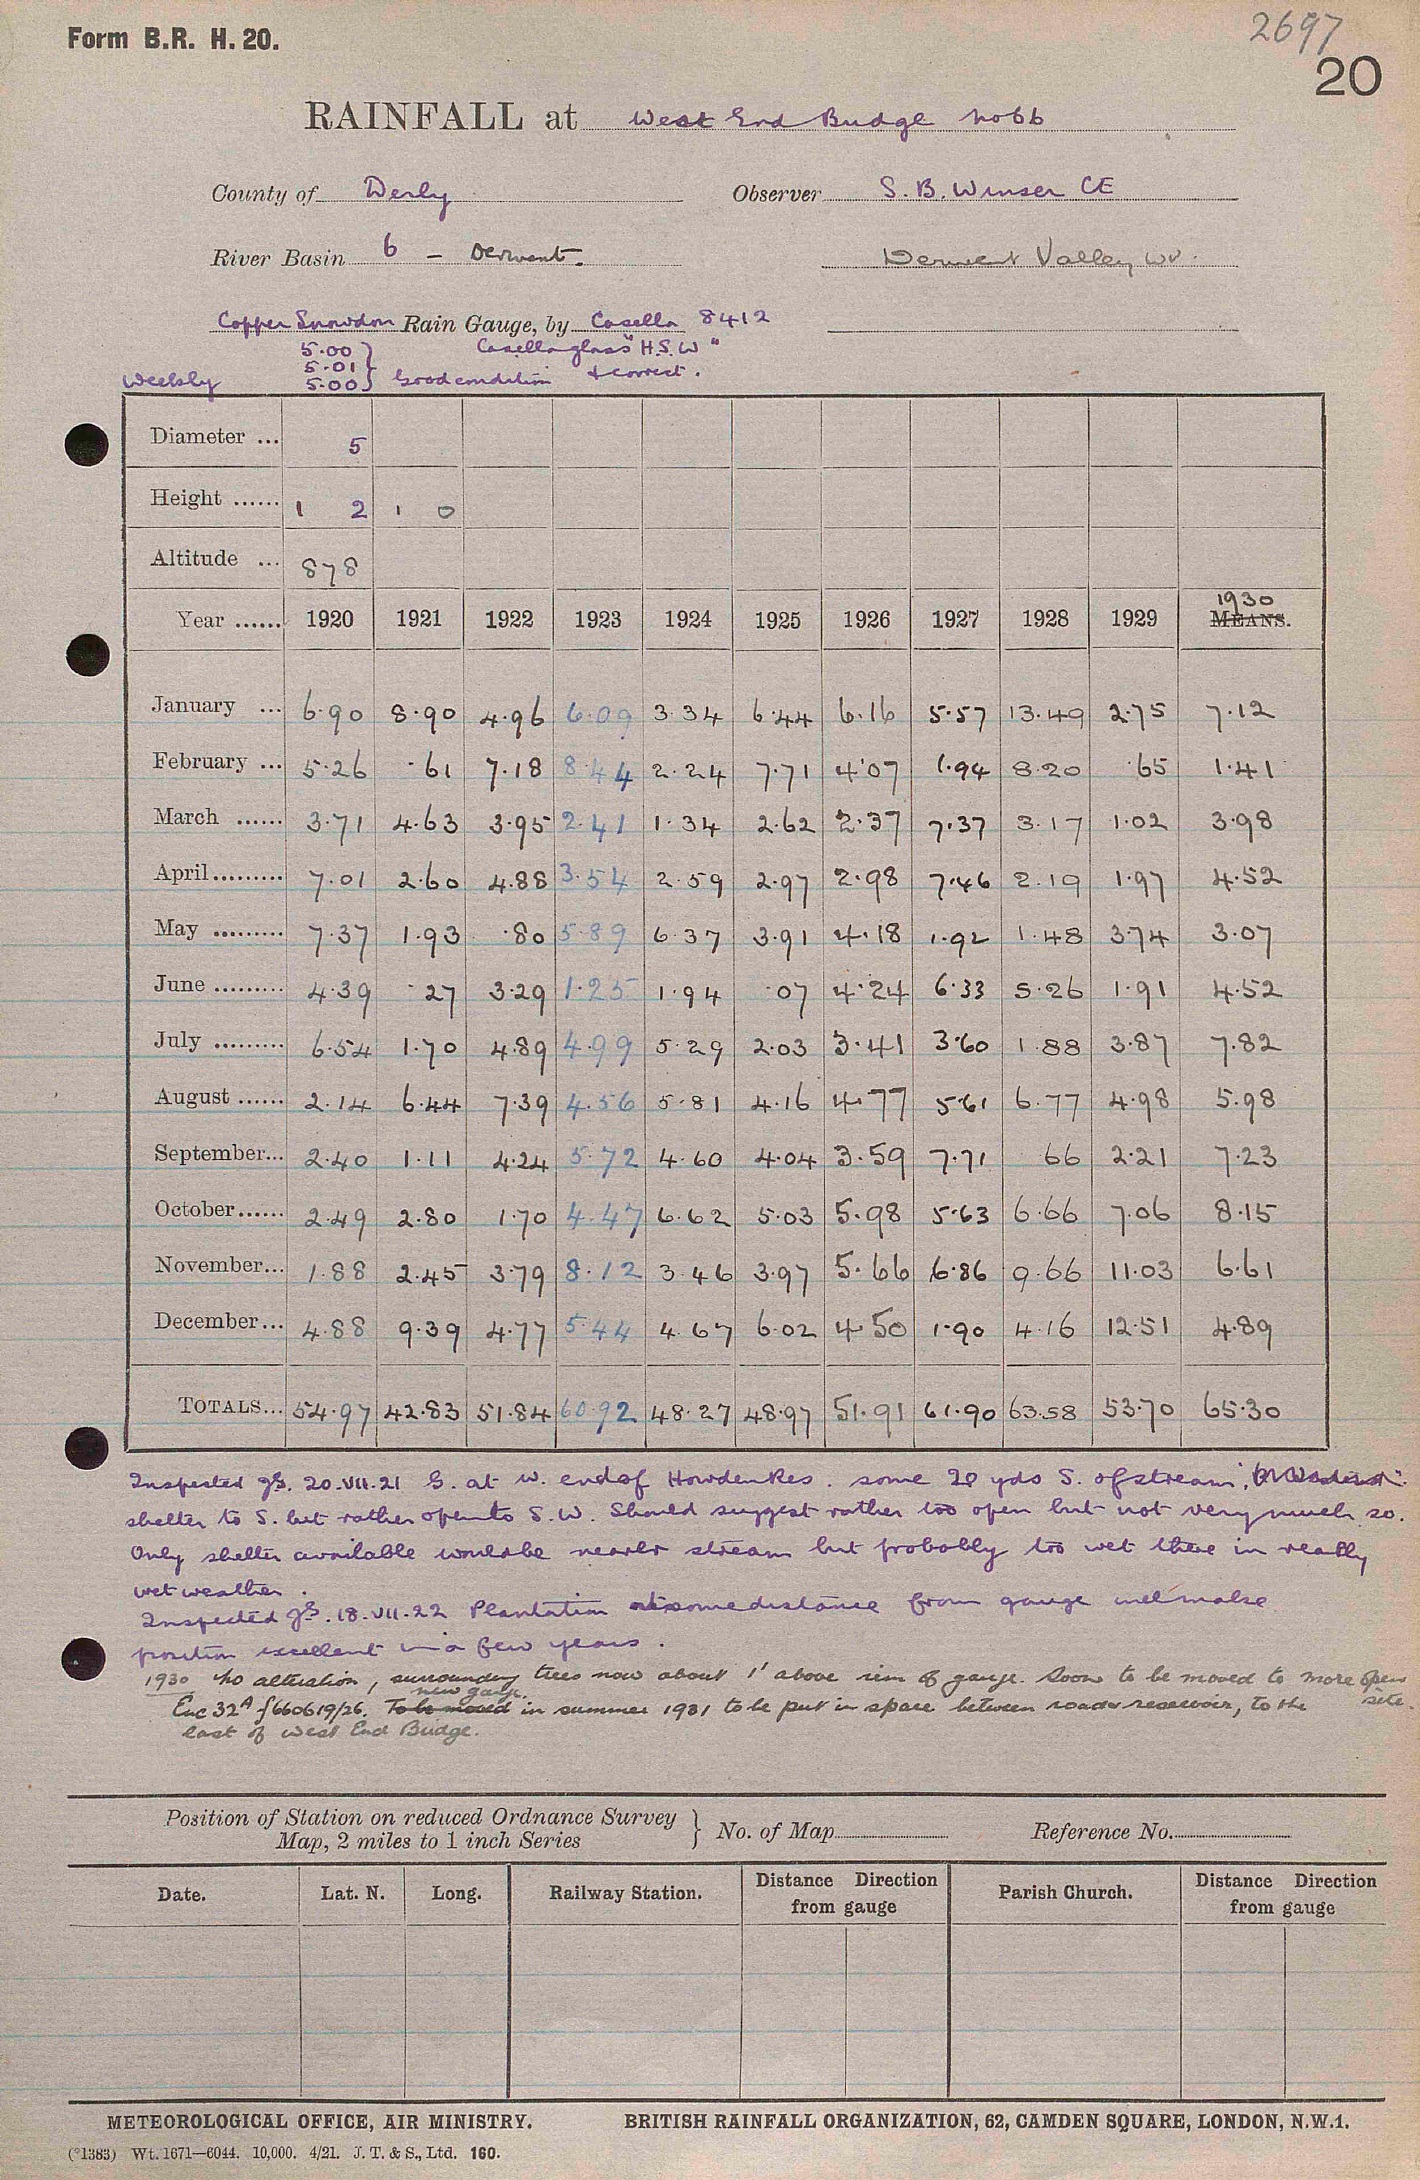 Form B.R. H. 20.
2697
20
RAINFALL at West End Budge No 6b
County of Derby Observer S. B. Winser CE
River Basin 6 - Derwent. Derwent Valley
Copper Snowdon Rain Gauge, by Casella 8412
5.00 } Casella glass "H.S.W"
5.01
Weekly 5.00 } Good condition & correct.
Diameter ... 5
Height ...... 1 2 1 0
Altitude ... 878
1930
Year ...... 1920 1921 1922 1923 1924 1925 1926 1927 1928 1929 MEANS.
January ... 6.90 8.90 4.96 6.09 3.34 6.44 6.16 5.57 13.49 2.75 7.12
February ... 5.26 .61 7.18 8.44 2.24 7.71 4.07 1.94 8.20 .65 1.41
March ...... 3.71 4.63 3.95 2.41 1.34 2.62 2.37 7.37 3.17 1.02 3.98
April......... 7.01 2.60 4.88 3.54 2.59 2.97 2.98 7.46 2.19 1.97 4.52
May ......... 7.37 1.93 .80 5.89 6.37 3.91 4.18 1.92 1.48 3.74 3.07
June ......... 4.39 .27 3.29 1.25 1.94 .07 4.24 6.33 5.26 1.91 4.52
July ......... 6.54 1.70 4.89 4.99 5.29 2.03 3.41 3.60 1.88 3.87 7.82
August ...... 2.14 6.44 7.39 4.56 5.81 4.16 4.77 5.61 6.77 4.98 5.98
September... 2.40 1.11 4.24 5.72 4.60 4.04 3.59 7.71 66 2.21 7.23
October...... 2.49 2.80 1.70 4.47 6.62 5.03 5.98 5.63 6.66 7.06 8.15
November... 1.88 2.45 3.79 8.12 3.46 3.97 5.66 6.86 9.66 11.03 6.61
December... 4.88 9.39 4.77 5.44 4.67 6.02 4.50 1.90 4.16 12.51 4.89
TOTALS... 54.97 42.83 51.84 60.92 48.27 48.97 51.91 61.90 63.58 53.70 65.30
Inspected 20.VII.21 G. at W. end of Howden Res. some 20 yds S. of stream
shelter to S. but rather open to S.W. Should suggest rather too open but not very much so.
Only shelter available would be nearer stream but probably too wet there in really
wet weather.
Inspected 18.VII.22 Plantation at some distance from gauge will make
position excellent in a few years.
1930 No alteration, surrounding trees now about 1' above rim of gauge. Soon to be moved to more open site.
new gauge
Enc 32A f660619/26. To be moved in summer 1931 to be put in space between road & reservoir, to the
East of West End Budge.
Position of Station on reduced Ordnance Survey
Map, 2 miles to 1 inch Series } No. of Map Reference No.
Date. Lat. N. Long. Railway Station. Distance from gauge Direction Parish Church. Distance from gauge Direction
METEOROLOGICAL OFFICE, AIR MINISTRY. BRITISH RAINFALL ORGANIZATION, 62, CAMDEN SQUARE, LONDON, N.W.1.
(*1383) Wt. 1671—6044. 10,000. 4/21. J. T. & S., Ltd. 160.